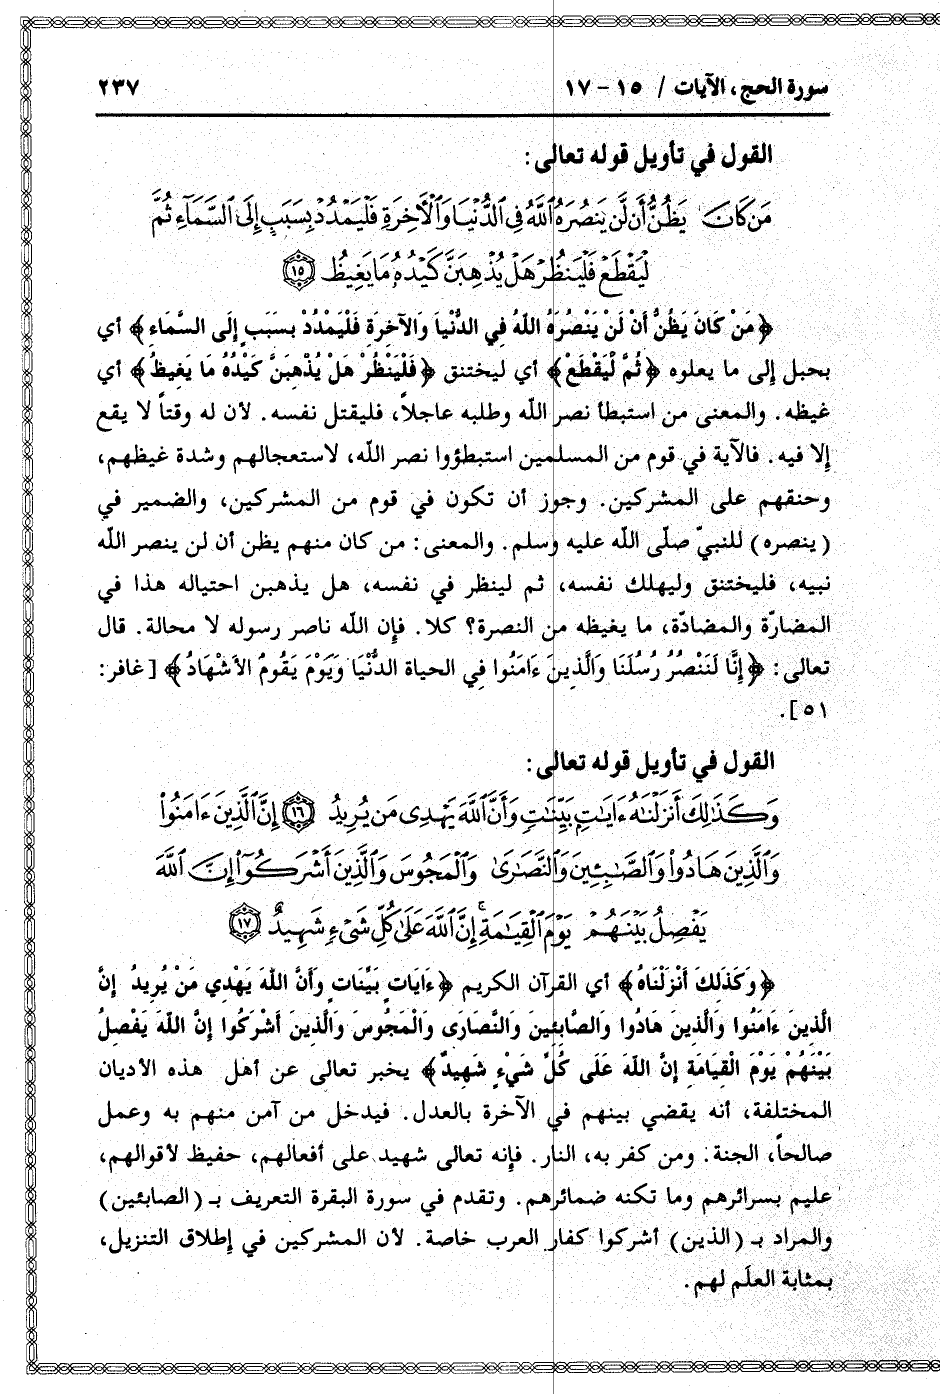 سورة الحج، الآيات / ١٥ - ١٧ ٢٣٧
القول في تأويل قوله تعالى:
مَن كَانَ يَظُنُّ أَن لَّن يَنصُرَهُ ٱللَّهُ فِى ٱلدُّنْيَا وَٱلْأَخِرَةِ فَلْيَمْدُدْ بِسَبَبٍ إِلَى ٱلسَّمَآءِ ثُمَّ
لْيَقْطَعْ فَلْيَنظُرْ هَلْ يُذْهِبَنَّ كَيْدُهُۥ مَا يَغِيظُ ١٥
﴿مَنْ كَانَ يَظُنُّ أَنْ لَنْ يَنْصُرَهُ اللَّهُ فِي الدُّنْيَا وَالآخِرَةِ فَلْيَمْدُدْ بِسَبَبٍ إِلَى السَّمَاءِ﴾ أي
بحبل إلى ما يعلوه ﴿ثُمَّ لْيَقْطَعْ﴾ أي ليختنق ﴿فَلْيَنْظُرْ هَلْ يُذْهِبَنَّ كَيْدُهُ مَا يَغِيظُ﴾ أي
غيظه. والمعنى من استبطأ نصر اللّه وطلبه عاجلاً، فليقتل نفسه. لأن له وقتاً لا يقع
إلا فيه. فالآية في قوم من المسلمين استبطؤوا نصر اللّه، لاستعجالهم وشدة غيظهم،
وحنقهم على المشركين. وجوز أن تكون في قوم من المشركين، والضمير في
(ينصره) للنبيّ صلّى اللّه عليه وسلم. والمعنى: من كان منهم يظن أن لن ينصر اللّه
نبيه، فليختنق وليهلك نفسه، ثم لينظر في نفسه، هل يذهبن احتياله هذا في
المضارّة والمضادّة، ما يغيظه من النصرة؟ كلا. فإن اللّه ناصر رسوله لا محالة. قال
تعالى: ﴿إِنَّا لَنَنْصُرُ رُسُلَنَا وَالَّذِينَ ءَامَنُوا فِي الحياة الدُّنْيَا وَيَوْمَ يَقُومُ الأَشْهَادُ﴾ [غافر:
٥١].
القول في تأويل قوله تعالى:
وَكَذَٰلِكَ أَنزَلْنَٰهُ ءَايَٰتٍ بَيِّنَٰتٍ وَأَنَّ ٱللَّهَ يَهْدِى مَن يُرِيدُ ١٦ إِنَّ ٱلَّذِينَ ءَامَنُواْ
وَٱلَّذِينَ هَادُواْ وَٱلصَّٰبِـِٔينَ وَٱلنَّصَٰرَىٰ وَٱلْمَجُوسَ وَٱلَّذِينَ أَشْرَكُوٓاْ إِنَّ ٱللَّهَ
يَفْصِلُ بَيْنَهُمْ يَوْمَ ٱلْقِيَٰمَةِ ۚ إِنَّ ٱللَّهَ عَلَىٰ كُلِّ شَىْءٍ شَهِيدٌ ١٧
﴿وَكَذَلِكَ أَنْزَلْنَاهُ﴾ أي القرآن الكريم ﴿ءَايَاتٍ بَيِّنَاتٍ وَأَنَّ اللَّهَ يَهْدِي مَنْ يُرِيدُ إِنَّ
الَّذِينَ ءَامَنُوا وَالَّذِينَ هَادُوا وَالصَّابِئِينَ وَالنَّصَارَى وَالْمَجُوسَ وَالَّذِينَ أَشْرَكُوا إِنَّ اللَّهَ يَفْصِلُ
بَيْنَهُمْ يَوْمَ الْقِيَامَةِ إِنَّ اللَّهَ عَلَى كُلِّ شَيْءٍ شَهِيدٌ﴾ يخبر تعالى عن أهل هذه الأديان
المختلفة، أنه يقضي بينهم في الآخرة بالعدل. فيدخل من آمن منهم به وعمل
صالحاً، الجنة. ومن كفر به، النار. فإنه تعالى شهيد على أفعالهم، حفيظ لأقوالهم،
عليم بسرائرهم وما تكنه ضمائرهم. وتقدم في سورة البقرة التعريف بـ (الصابئين)
والمراد بـ (الذين) أشركوا كفار العرب خاصة. لأن المشركين في إطلاق التنزيل،
بمثابة العلَم لهم.